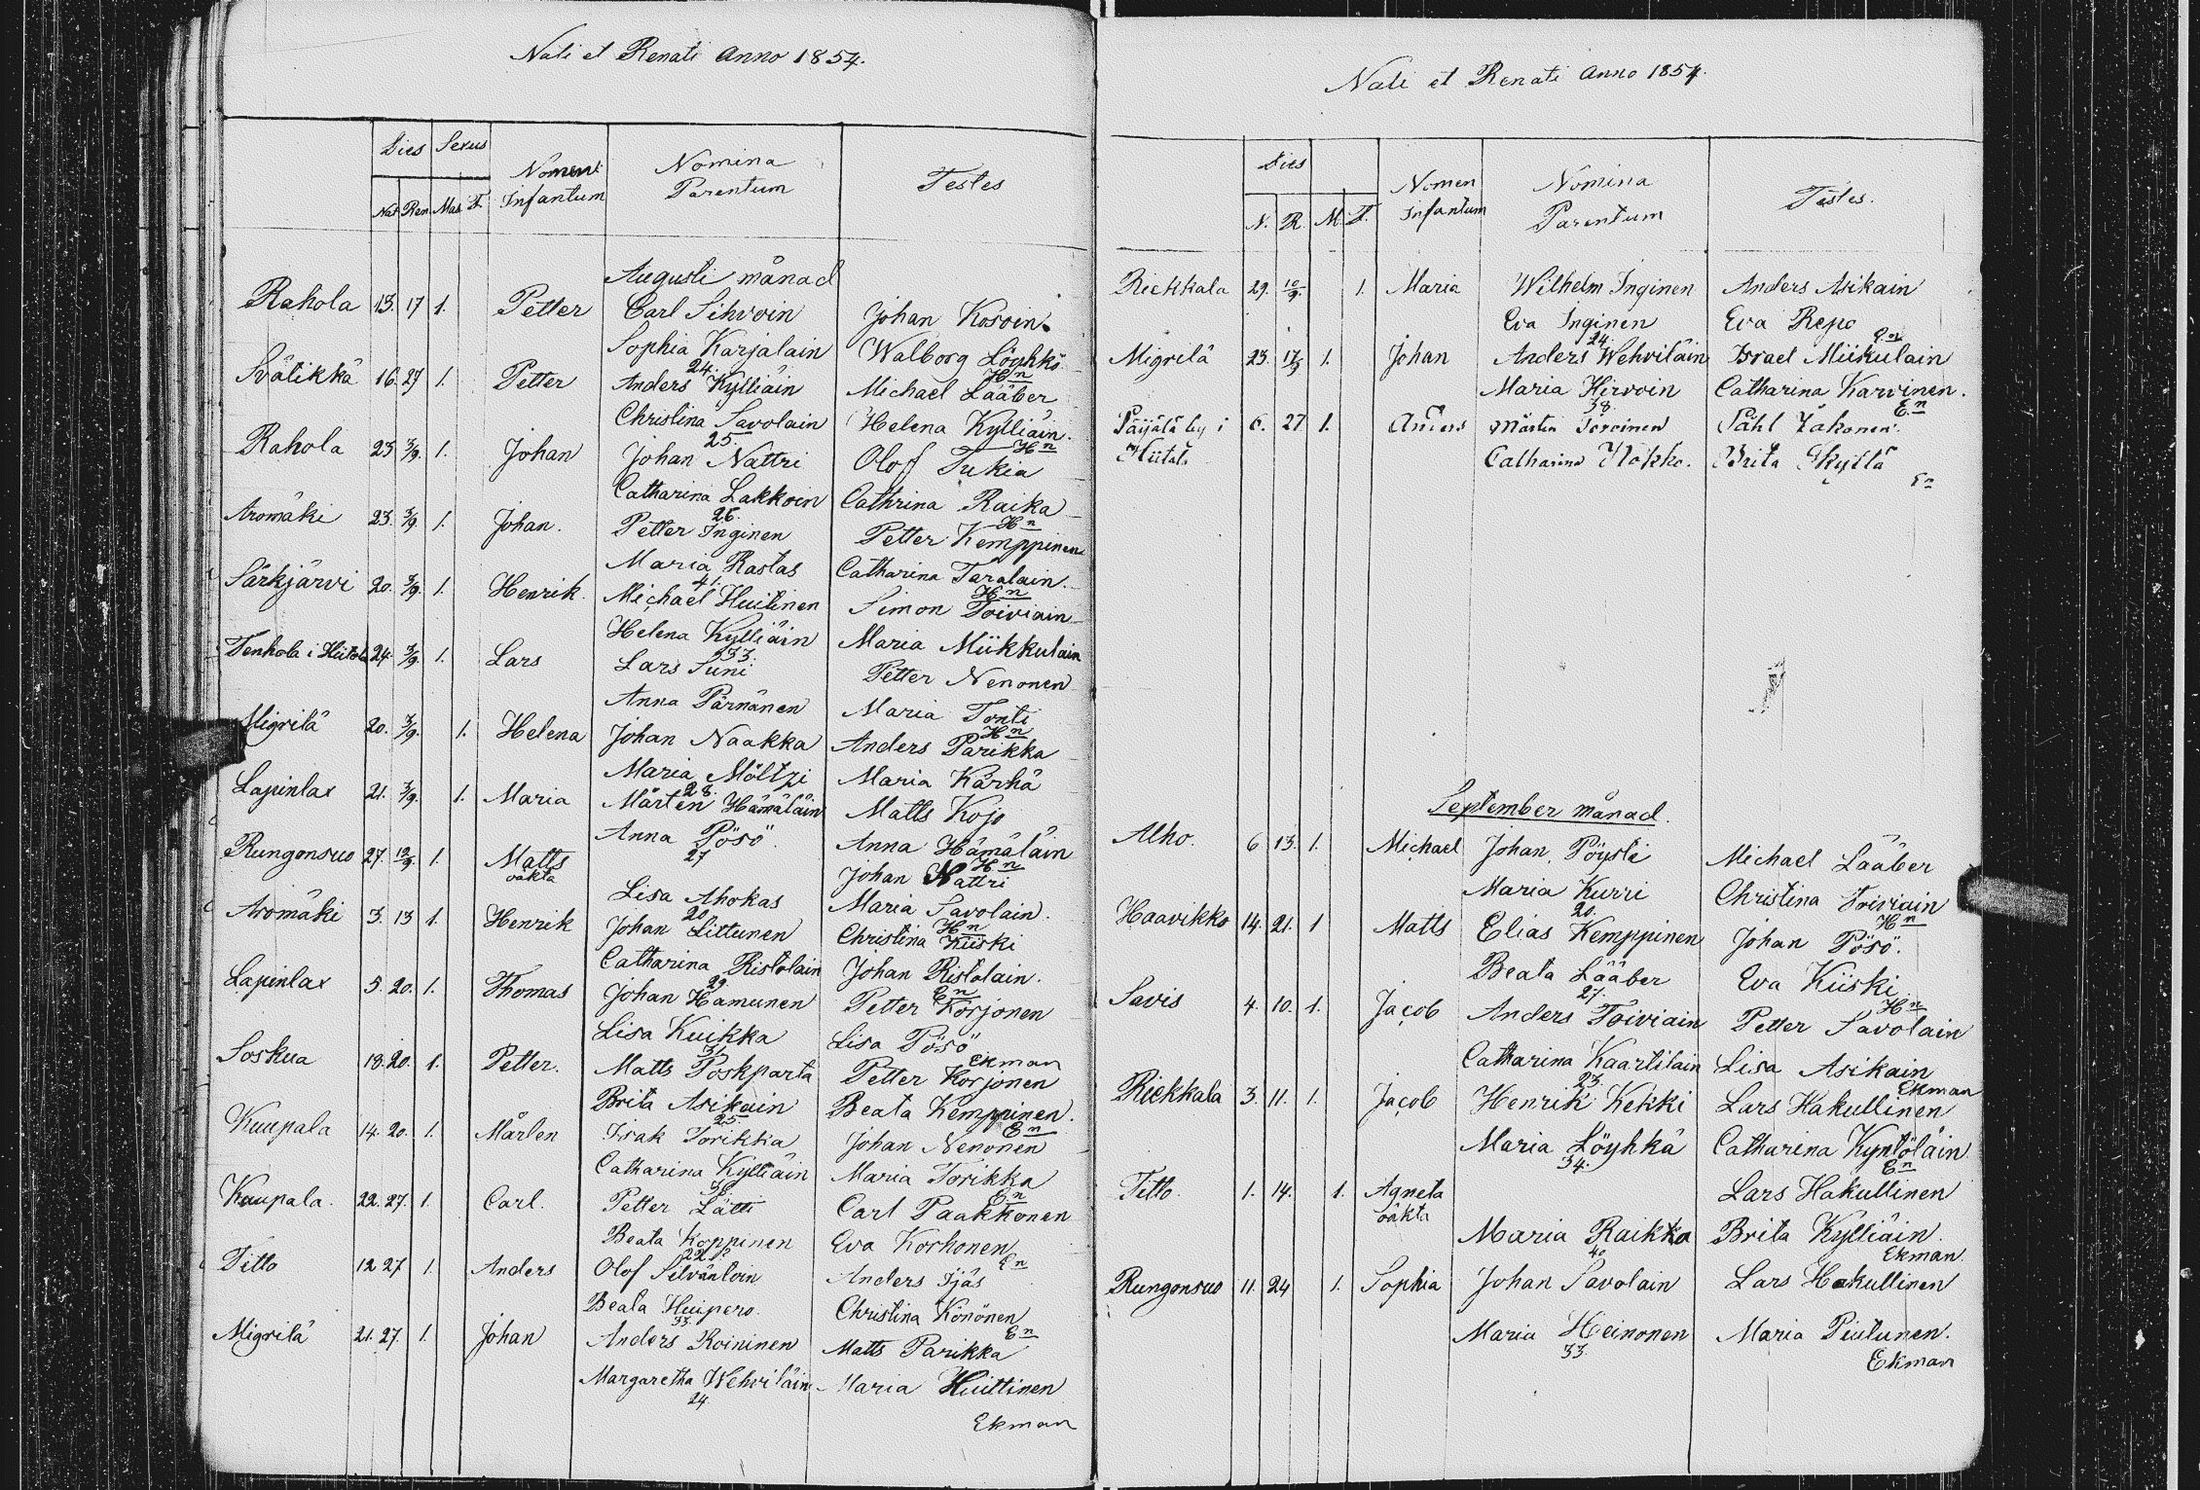 Nati et Renati Anno 1854.
Dies Sexus Nomen Infantum Nomina Parentum Testes
Nat Ren Mas F.
Augusti månad
Rahola 13. 17 1. Petter Carl Sihvoin Johan Kosoin
Sophia Karjalain Walborg Löyhkö
24. Hn
Svätikkä 16. 27 1. Petter Anders Kylliäin Michael Lääber
Christina Savolain Helena Kylliäin.
25. Hn
Rahola 23 3/9. 1. Johan Johan Nattri Olof Tukia
Catharina Lakkoin Cathrina Raika
26. Hn
Aromäki 23. 3/9. 1. Johan. Petter Inginen Petter Kemppinen
Maria Rastas Catharina Taralain.
41. Hn
Särkjärvi 20. 3/9. 1. Henrik. Michael Huitinen Simon Toiviain
Helena Kylliäin Maria Miikkulain
33.
Tenhola i Hiitola 24. 3/9. 1. Lars Lars Suni Petter Nenonen
Anna Pärnänen Maria Tonti
Hn
Migrilä 20. 3/9. 1. Helena Johan Naakka Anders Parikka
Maria Möltzi Maria Kärhä
28.
Lapinlax 21. 3/9. 1. Maria Mårten Hämäläin Matts Kojo
Anna Pösö. Anna Hämäläin
27 Hn
Rungonsuo 27. 12/9. 1. Matts Johan Nattri
oäkta
Lisa Ahokas Maria Savolain.
20. Hn
Aromäki 3. 13 1. Henrik Johan Littunen Christina Kiiski
Catharina Ristolain Johan Ristolain.
29. En
Lapinlax 5. 20. 1. Thomas Johan Hamunen Petter Korjonen
Lisa Kuikka Lisa Pösö
31. Ekman
Soskua 18. 20. 1. Petter. Matts Poskparta Petter Korjonen
Brita Asikain Beata Kemppinen.
25. En
Kuupala 14. 20. 1. Mårten Isak Torikka Johan Nenonen
Catharina Kylliäin Maria Torikka
En
Kuupala. 22. 27. 1. Carl. Petter Lätti Carl Paakkonen
Beata Koppinen Eva Korhonen
En
Ditto 12 27 1. Anders Olof Silvänloin Anders Ijäs
Beata Huipero. Christina Könönen
33. En
Migrilä 21. 27. 1. Johan Anders Roininen Matts Parikka
Margaretha Wehviläin Maria Huittinen
24
Ekman
Nati et Renati Anno 1854.
Dies Nomen Infantum Nomina Parentum Testes.
N. R. M. F.
Riekkala 29. 10/9. 1. Maria Wilhelm Inginen Anders Asikain
Eva Inginen Eva Repo
24. En
Migrilä 23. 17/9 1. Johan Anders Wehviläin Israel Miikulain
Maria Hirvoin Catharina Karvinen.
38. En
Päijälä by i 6. 27 1. Anders Mårten Torvinen Påhl Yakonen.
Hiitola Catharina Kokko. Brita Skyttä
En
September månad.
Alho. 6 13. 1. Michael Johan Pöysti Michael Lääber
Maria Kurri Christina Toiviain
20. Hn
Haavikko 14. 21. 1 Matts Elias Kemppinen Johan Pösö.
Beata Lääber Eva Kiiski
27. Hn
Savis 4. 10. 1. Jacob Anders Toiviain Petter Savolain
Catharina Kaartilain Lisa Asikain
23. Ekman
Riekkala 3. 11. 1. Jacob Henrik Kekki Lars Hakullinen
Maria Löyhkä Catharina Kyntöläin
34. En
Ditto. 1. 14. 1. Agneta Lars Hakullinen
oäkta
Maria Raikka Brita Kylliäin.
40 Ekman.
Rungonsuo 11. 24 1. Sophia Johan Savolain Lars Hakullinen
Maria Heinonen Maria Piutunen.
33.
Ekman